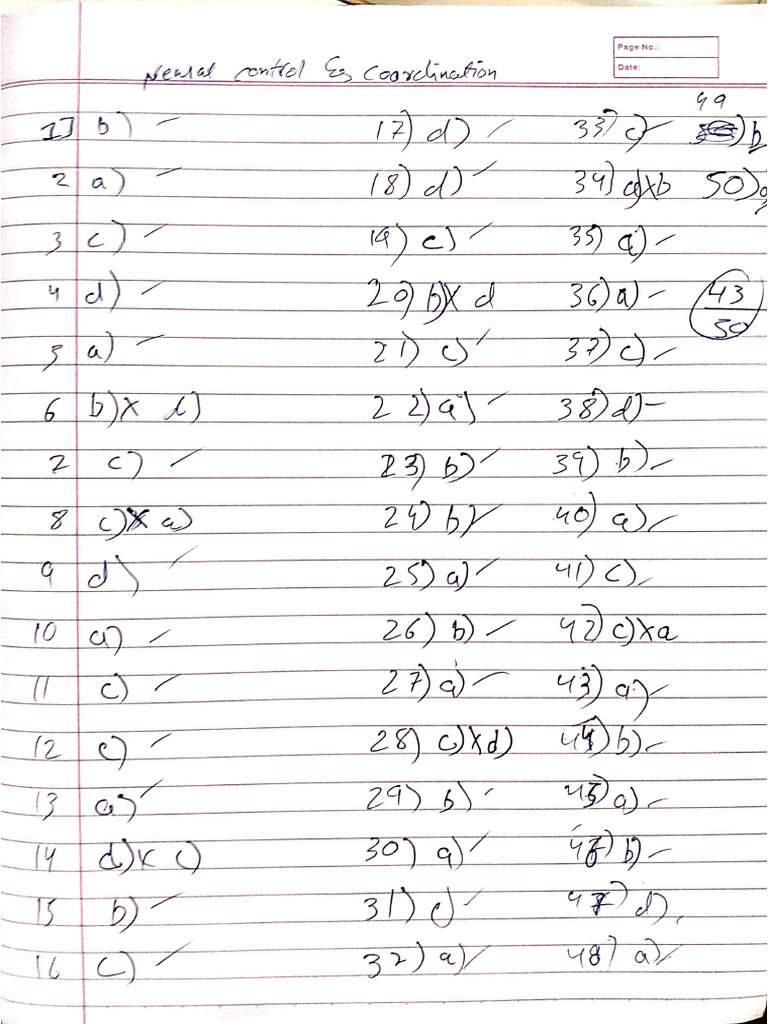 Page No.:
Date:
Neural control & Coordination
1] b)
2 a)
3 c)
4 d)
5 a)
6 b)x
7 c)
8 c)x a)
9 d)
10 a)
11 c)
12 c)
13 a)
14 d)x c)
15 b)
16 c)
17) d)
18) d)
19) c)
20) b)x d
21) c)
22) a)
23) b)
24) b)
25) a)
26) b)
27) a)
28) c)x d)
29) b)
30) a)
31) c)
32) a)
33) c)
34) a)x b
35) a)
36) a)
37) c)
38) d)
39) b)
40) a)
41) c)
42) c)x a
43) a)
44) b)
45) a)
46) b)
47) d)
48) a)
49) b
50)
43/50